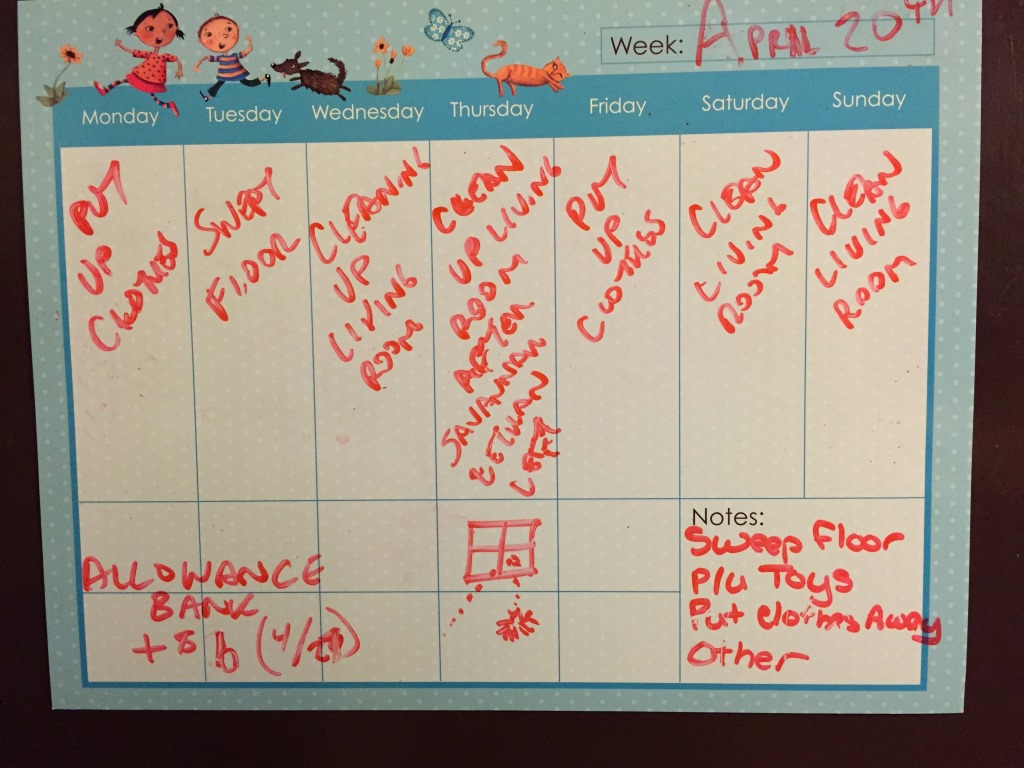 Week: APRIL 20th
Monday Tuesday Wednesday Thursday Friday Saturday Sunday
PUT
UP
CLOTHES
SWEPT
FLOOR
CLEANING
UP
LIVING
ROOM
CLEAN
UP LIVING
ROOM
AFTER
SAVANNAH
LEFT
PUT
UP
CLOTHES
CLEAN
LIVING
ROOM
CLEAN
LIVING
ROOM
Notes:
Sweep Floor
P/u Toys
Put clothes Away
Other
ALLOWANCE
BANK